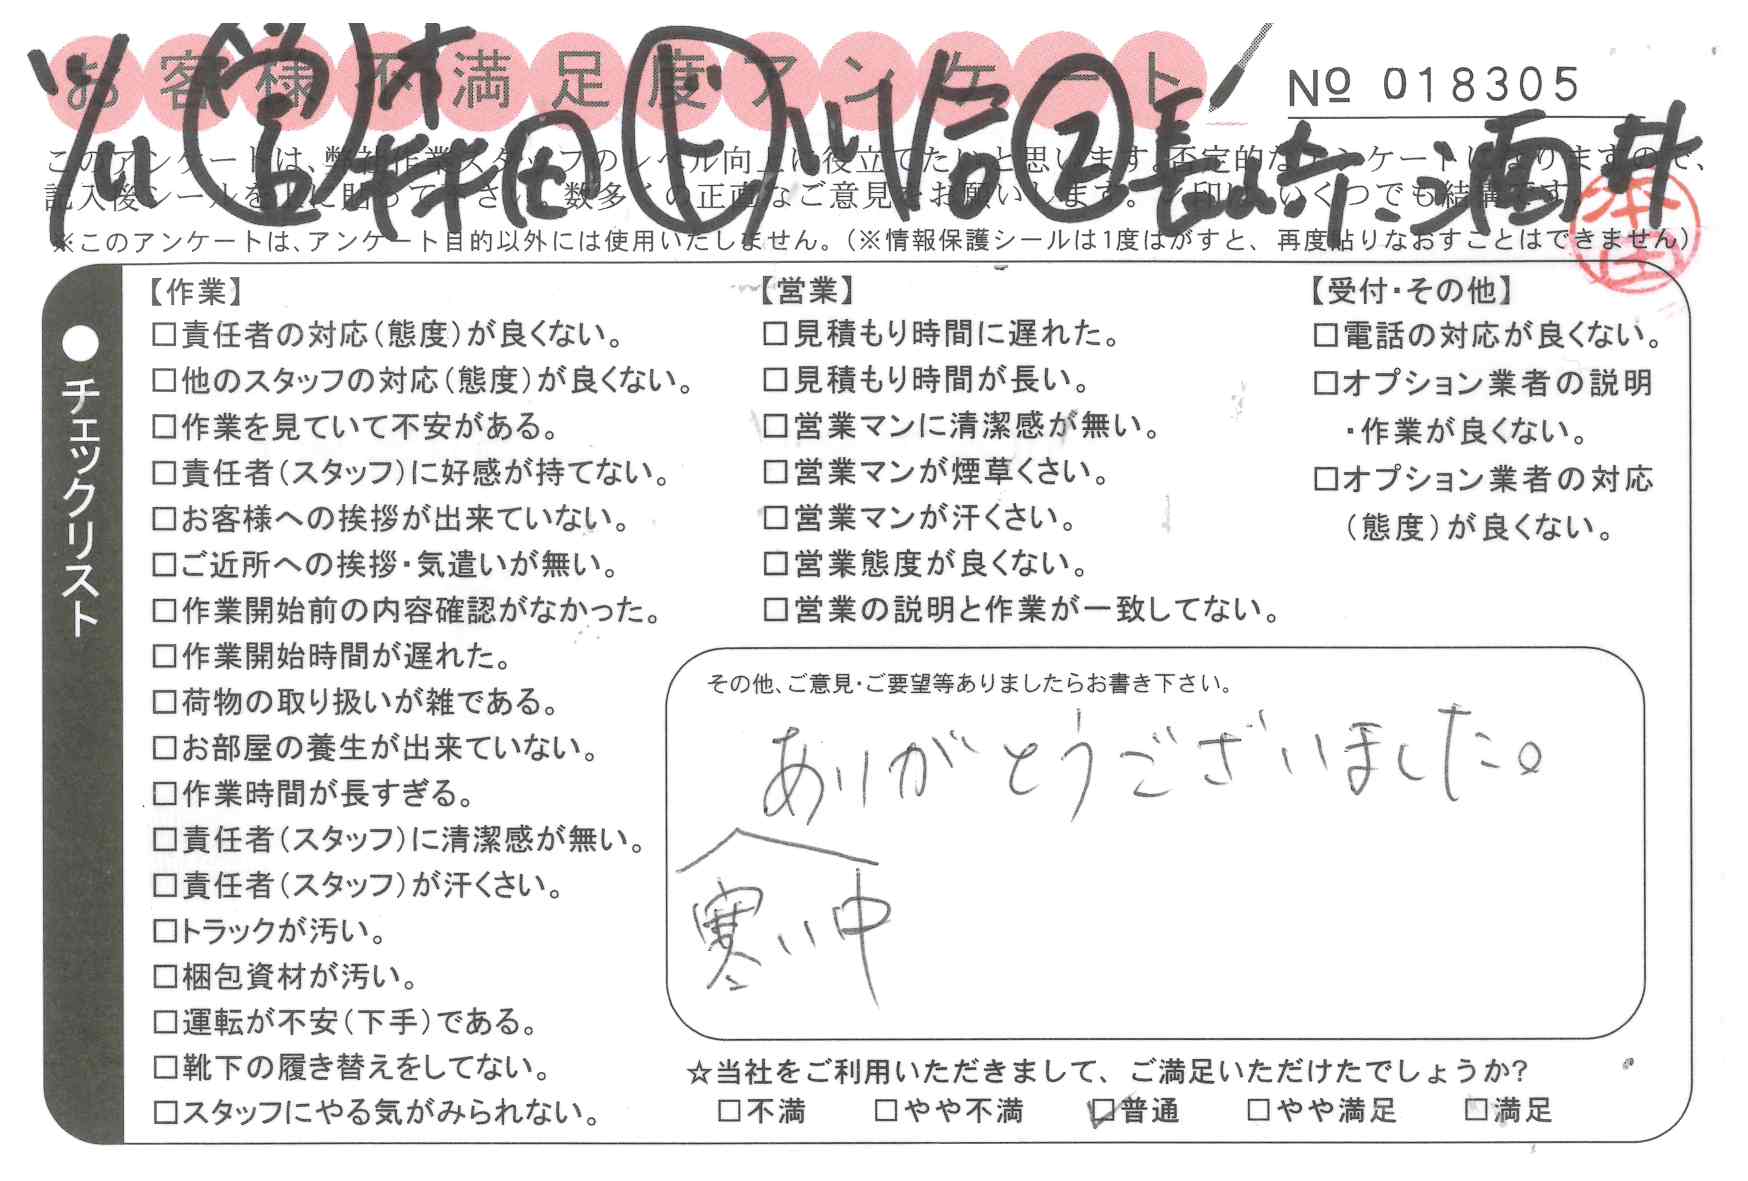 お客様不満足度アンケート
№ 018305
このアンケートは、弊社作業スタッフのレベル向上に役立てたいと思います。否定的なアンケートになりますので、
記入後シールを上に貼って下さい。数多くの正直なご意見をお願いします。✓印はいくつでも結構です。
※このアンケートは、アンケート目的以外には使用いたしません。（※情報保護シールは1度はがすと、再度貼りなおすことはできません）
本田
チェックリスト
【作業】
□責任者の対応（態度）が良くない。
□他のスタッフの対応（態度）が良くない。
□作業を見ていて不安がある。
□責任者（スタッフ）に好感が持てない。
□お客様への挨拶が出来ていない。
□ご近所への挨拶・気遣いが無い。
□作業開始前の内容確認がなかった。
□作業開始時間が遅れた。
□荷物の取り扱いが雑である。
□お部屋の養生が出来ていない。
□作業時間が長すぎる。
□責任者（スタッフ）に清潔感が無い。
□責任者（スタッフ）が汗くさい。
□トラックが汚い。
□梱包資材が汚い。
□運転が不安（下手）である。
□靴下の履き替えをしてない。
□スタッフにやる気がみられない。
【営業】
□見積もり時間に遅れた。
□見積もり時間が長い。
□営業マンに清潔感が無い。
□営業マンが煙草くさい。
□営業マンが汗くさい。
□営業態度が良くない。
□営業の説明と作業が一致してない。
【受付・その他】
□電話の対応が良くない。
□オプション業者の説明
・作業が良くない。
□オプション業者の対応
（態度）が良くない。
その他、ご意見・ご要望等ありましたらお書き下さい。
ありがとうございました。
寒い中
☆当社をご利用いただきまして、ご満足いただけたでしょうか?
□不満 □やや不満 ☑普通 □やや満足 □満足